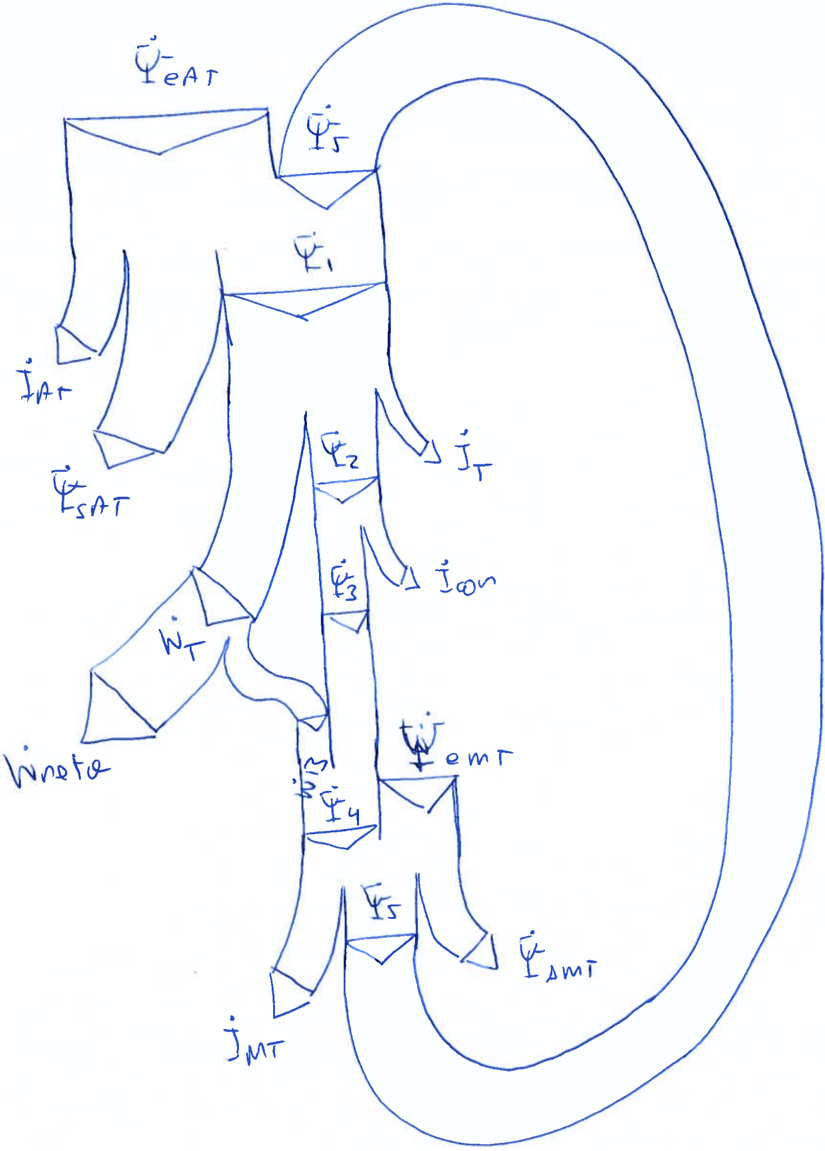 Ψ̇eAT
Ψ̇5
Ψ̇1
İAT
Ψ̇sAT
Ψ̇2
İT
Ψ̇3
İcon
ẆT
Ẇneto
Ψ̇emT
ẆB
Ψ̇4
Ψ̇5
Ψ̇smT
İMT